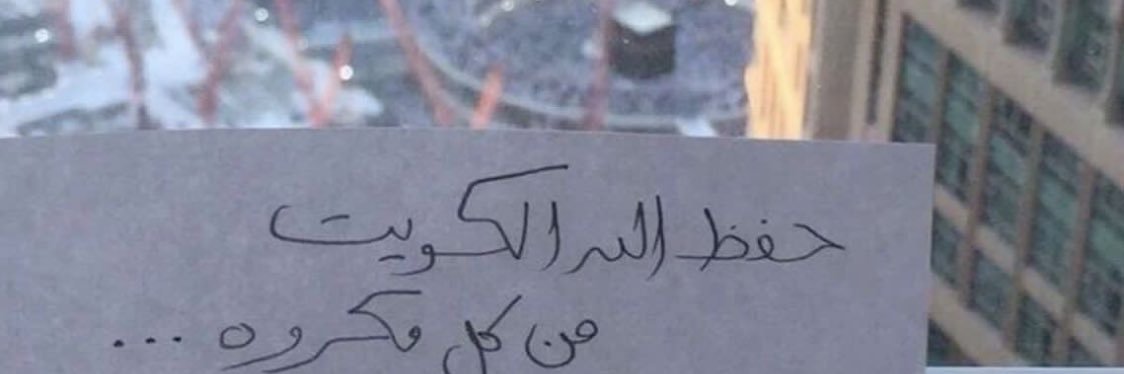 حفظ الله الكويت
من كل مكروه ...